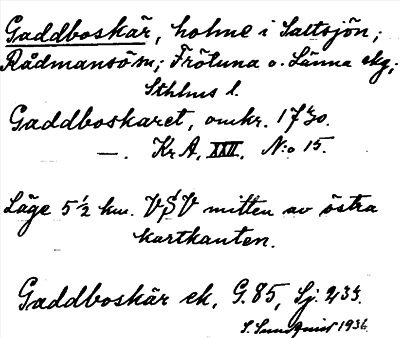 Gaddboskär, holme i Saltsjön;
Rådmansöm; Frötuna o. Länna skg;
Sthlms l.
Gaddboskaret, omkr. 1730.
—. Kr.A. XXII. N:o 15.
Läge 5 1/2 km. VSV mitten av östra
kartkanten.
Gaddboskär ek, G. 85, Sj. 233.
S. Sundquist 1936.